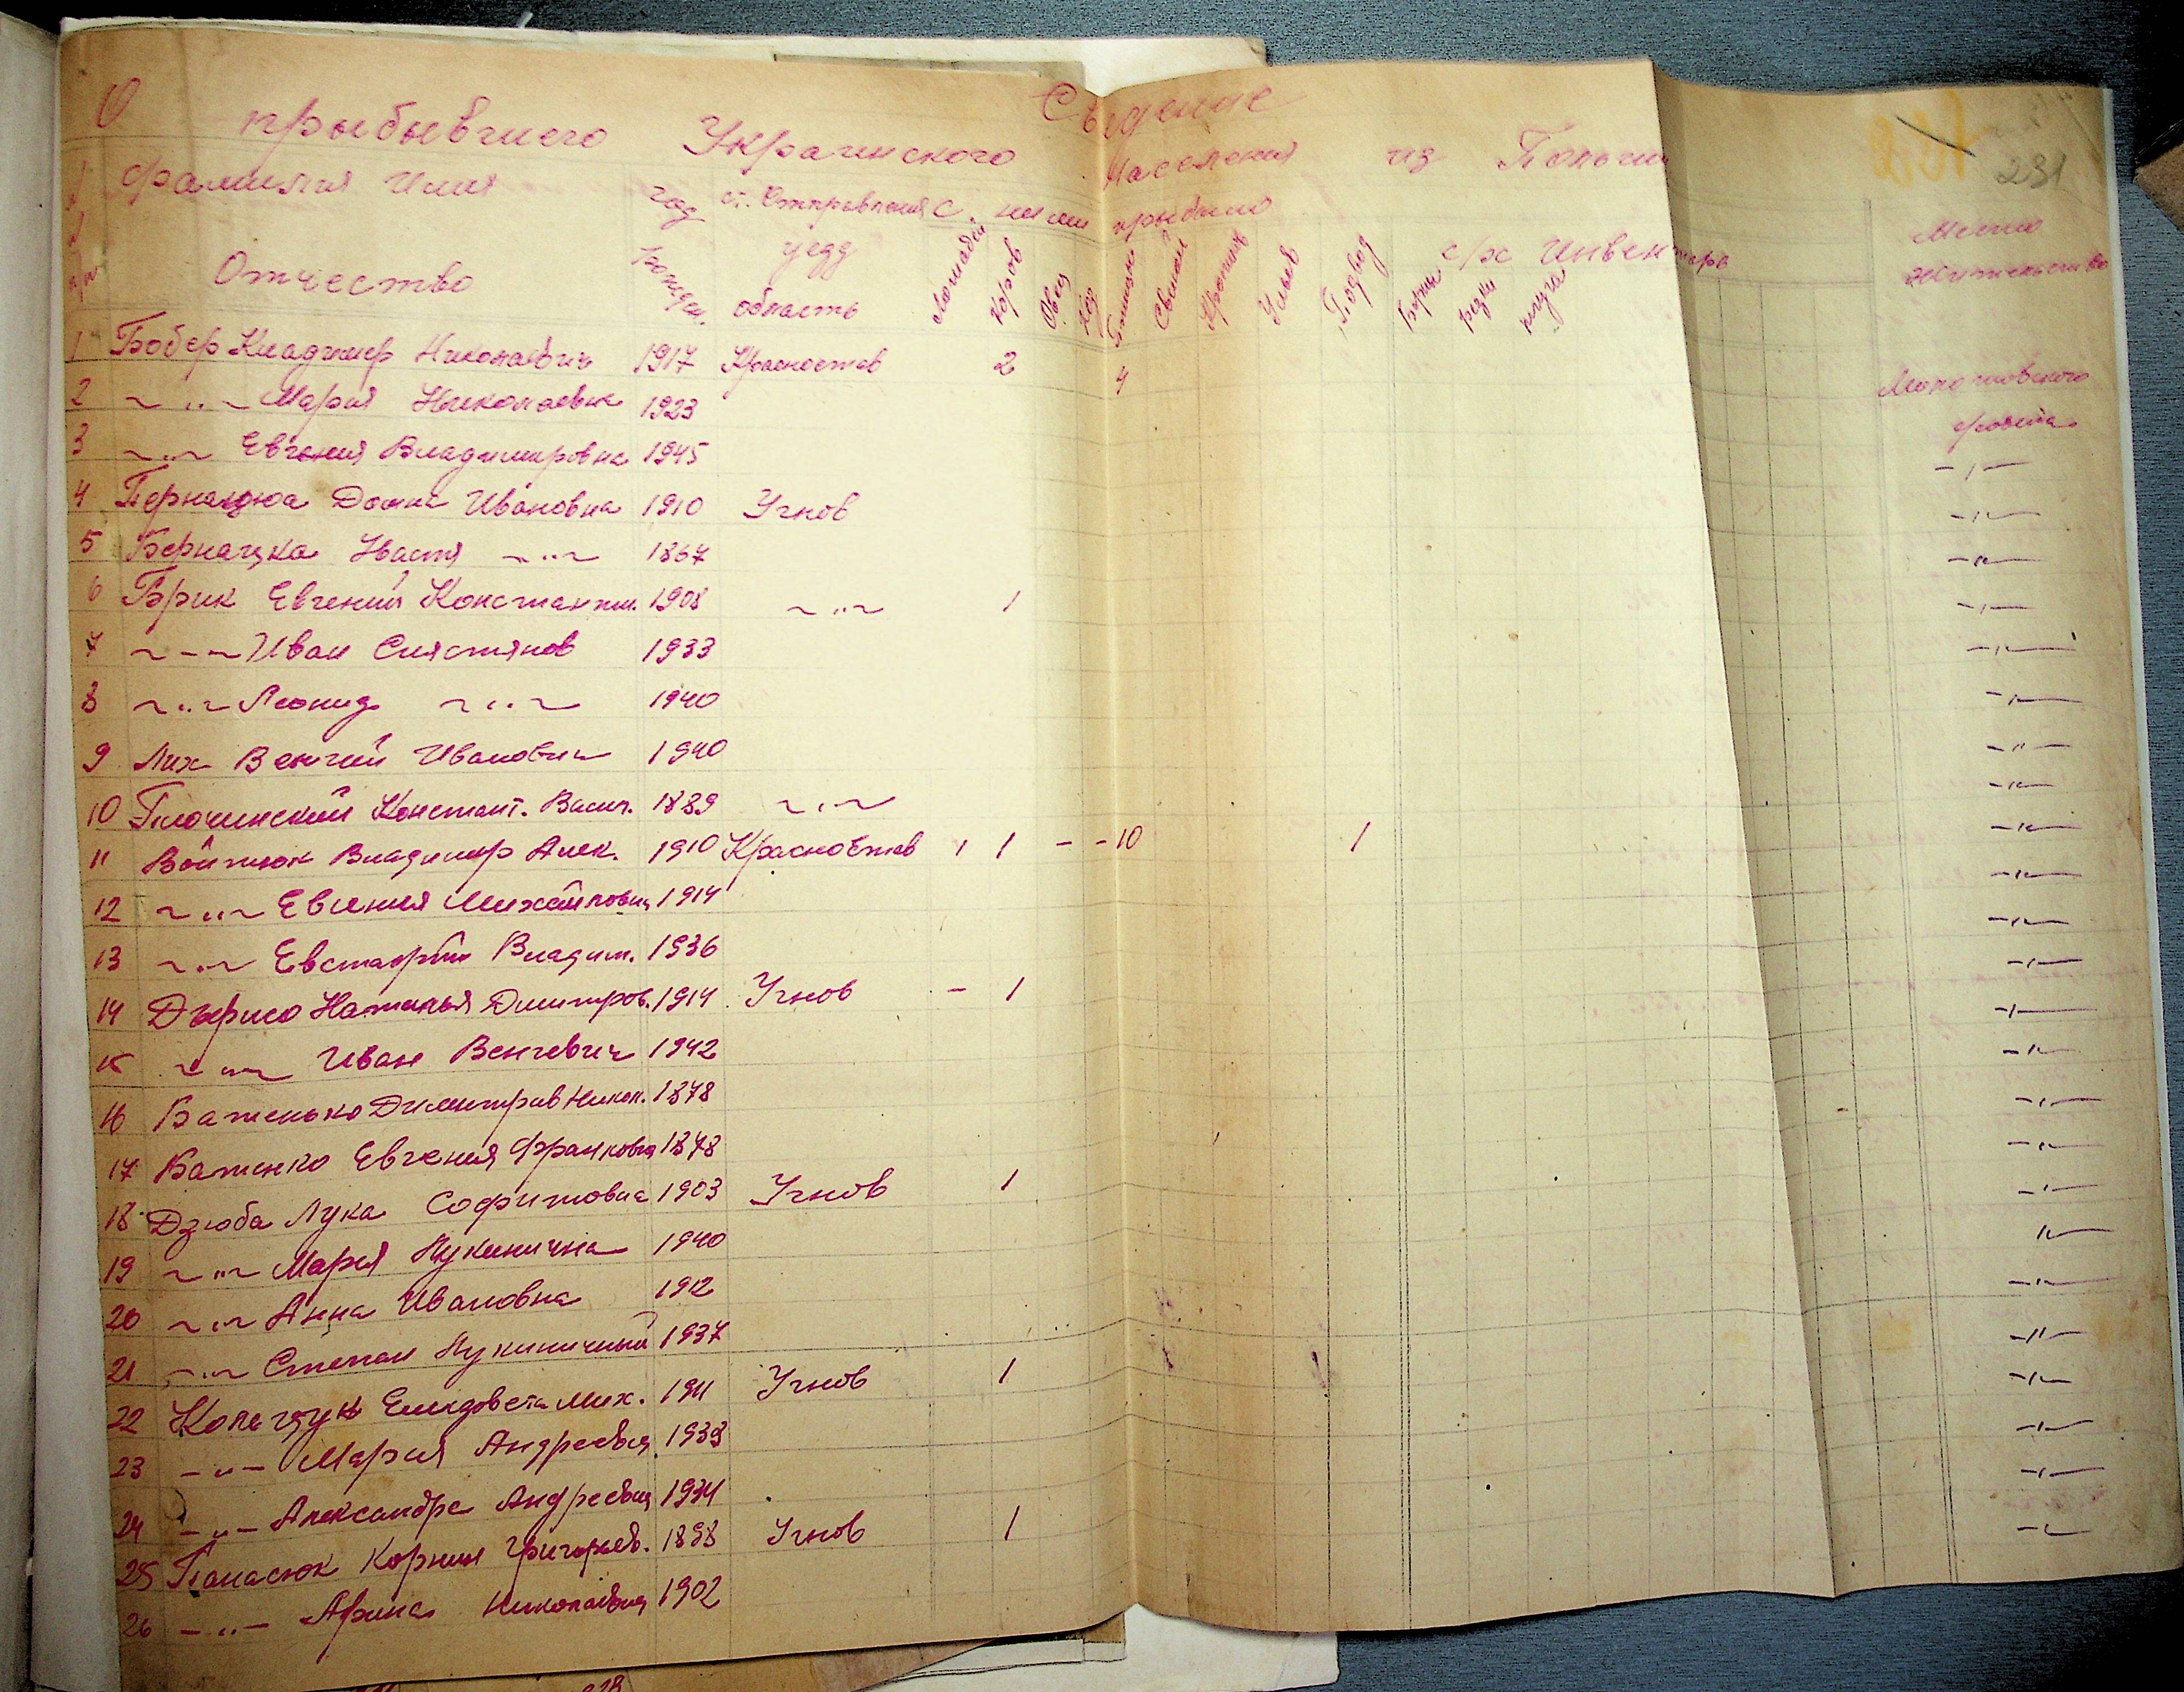 Сведение
О прыбывшего Украинского Населения из Польши
231
№ п/п Фамилия Имя Отчество год рожден. ст. Отправления уезд область С ними прыбыло Место жительство
Лошадей Коров Овец Коз Птицы Свиней Ульев Подвод с/х Инвентарь Бороны резки плуга
1 Бобер Владимер Николаевич 1917 Красностав 2 4
2 ~ " ~ Мария Николаевна 1923
3 ~ " ~ Евгения Владимировна 1945
4 Домка Ивановна 1910 Угнов
5 Бернацка Настя ~ " ~ 1867
6 Брик Евгений Константин. 1908 ~ " ~ 1
7 ~ - ~ Иван 1933
8 ~ " ~ Леонид ~ " ~ 1940
9 Лих Иванович 1940
10 Констант. Васил. 1889 ~ " ~
11 Войтюк Владимир Алек. 1910 Красностав 1 1 - - 10 1
12 ~ " ~ Евгения Михайловна 1914
13 ~ " ~ Евстафий Владим. 1936
14 Наталья Дмитров. 1914 Угнов - 1
15 ~ " ~ Иван 1942
16 Батенько Димитрив Никол. 1878
17 Батенко Евгения Франковна 1878
18 Дзюба Лука 1903 Угнов 1
19 ~ " ~ Мария Лукинична 1940
20 ~ " ~ Анна Ивановна 1912
21 ~ " ~ Степан 1937
22 Мих. 1911 Угнов 1
23 - " - Мария Андреевна 1938
24 - " - Александра Андреевна 1934
25 Панасюк Корнил Григорьев. 1898 Угнов 1
26 - " - Арина Николаевна 1902